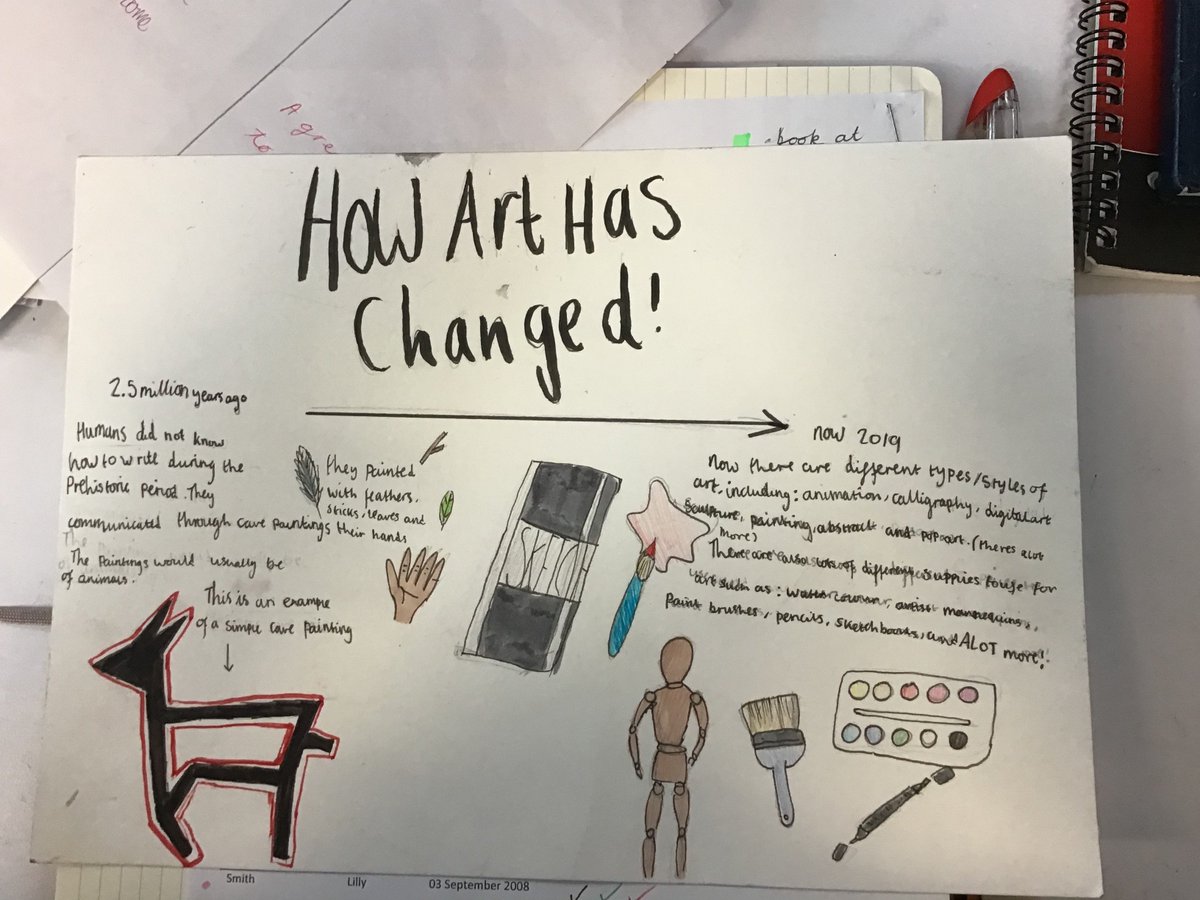 ome
A gre
to
book at
How Art Has
Changed!
2.5 million years ago
Humans did not know
how to write during the
Prehistoric period. They
communicated through cave paintings
The
The Paintings would usually be
of animals.
they painted
with feathers,
sticks, leaves and
their hands
This is an example
of a simple cave painting
now 2019
Now there are different types/styles of
art, including: animation, calligraphy, digital art
Sculpture, painting, abstract and pop art. (theres alot
more)
There are also lots of different supplies to use for
art such as: watercolour, artist mannequins,
Paint brushes, pencils, sketchbooks, and ALOT more!
Smith Lilly 03 September 2008